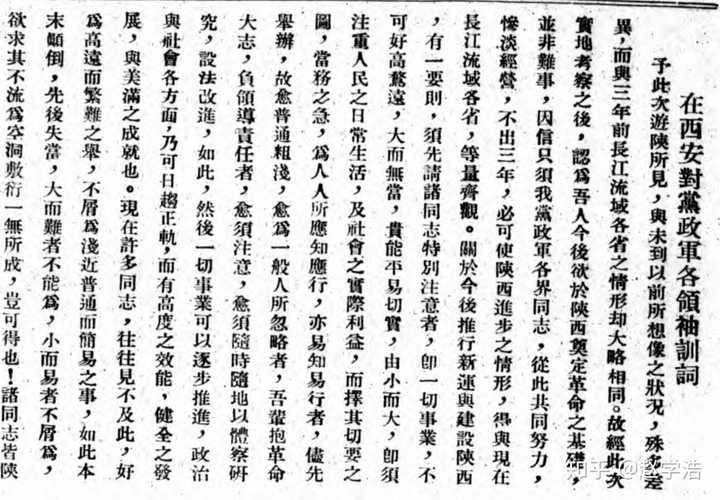 在西安對黨政軍各領袖訓詞
予此次遊陝所見，與未到以前所想像之狀况，殊多差
異，而與三年前長江流域各省之情形却大略相同。故經此次
實地考察之後，認爲吾人今後欲於陝西奠定革命之基礎，
並非難事，因信只須我黨政軍各界同志，從此共同努力，
慘淡經營，不出三年，必可使陝西進步之情形，得與現在
長江流域各省，等量齊觀。關於今後推行新運與建設陝西
，有一要則，須先請諸同志特別注意者，卽一切事業，不
可好高騖遠，大而無當，貴能平易切實，由小而大，卽須
注重人民之日常生活，及社會之實際利益，而擇其切要之
圖，當務之急，爲人人所應知應行，亦易知易行者，儘先
舉辦，故愈普通粗淺，愈爲一般人所忽略者，吾輩抱革命
大志，負領導責任者，愈須注意，愈須隨時隨地以體察研
究，設法改進，如此，然後一切事業可以逐步推進，政治
與社會各方面，乃可日趨正軌，而有高度之效能，健全之發
展，與美滿之成就也。現在許多同志，往往見不及此，好
爲高遠而繁難之舉，不屑爲淺近普通而簡易之事，如此本
末顚倒，先後失當，大而難者不能爲，小而易者不屑爲，
欲求其不流爲空洞敷衍一無所成，豈可得也！諸同志皆陝
知乎 @赵学浩